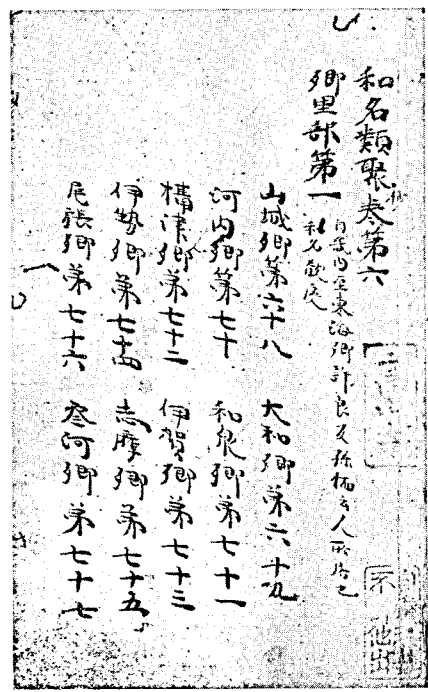 和名類聚抄巻第六
郷里部第一
山城郷第六十八 大和郷第六十九
河内郷第七十 和泉郷第七十一
攝津郷第七十二 伊賀郷第七十三
伊勢郷第七十四 志摩郷第七十五
尾張郷第七十六 叅河郷第七十七